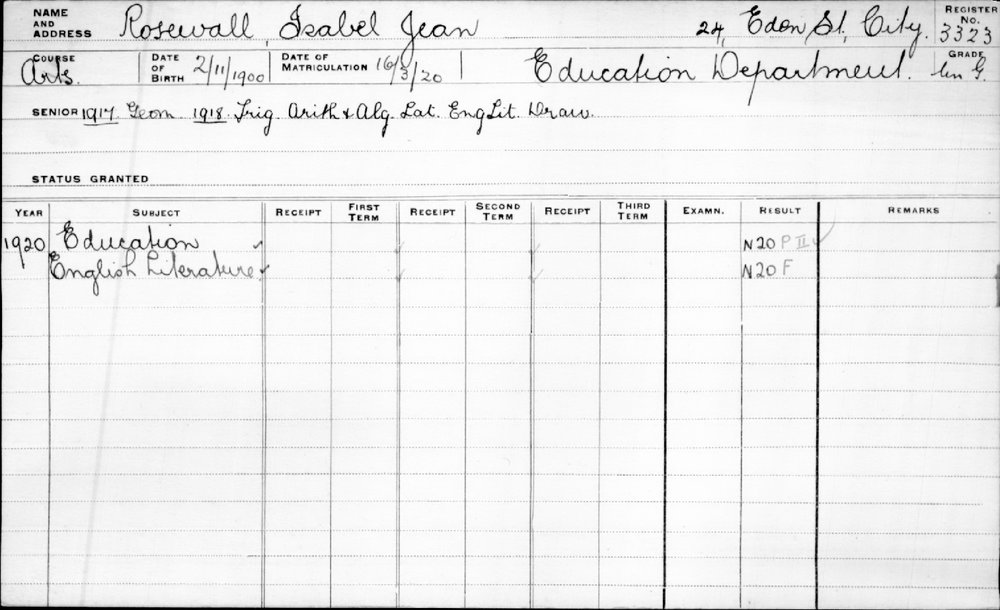 NAME AND ADDRESS Rosewall, Isabel Jean 24, Eden St, City. REGISTER No. 3323
COURSE Arts. DATE OF BIRTH 2/11/1900 DATE OF MATRICULATION 16/3/20 Education Department. GRADE
SENIOR 1917 Geom 1918 Trig. Arith & Alg. Lat. Eng Lit. Draw.
STATUS GRANTED
YEAR SUBJECT RECEIPT FIRST TERM RECEIPT SECOND TERM RECEIPT THIRD TERM EXAMN. RESULT REMARKS
1920 Education ✓ ✓ ✓ N20 P II ✓
English Literature ✓ ✓ ✓ N20 F